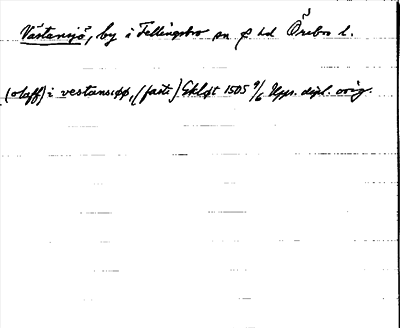 Västansjö, by i Fellingsbro sn o hd Örebro l.
(olaff) i vestansiøø, (faste) Ekløt 1505 9/6 Upps. dipl. orig.